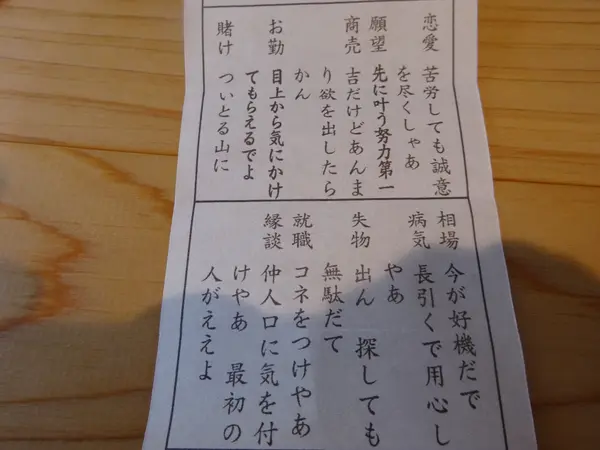 恋愛 苦労しても誠意
を尽くしゃあ
願望 先に叶う努力第一
商売 吉だけどあんま
り欲を出したら
かん
お勤 目上から気にかけ
てもらえるでよ
賭け ついとる山に
相場 今が好機だで
病気 長引くで用心し
やあ
失物 出ん 探しても
無駄だて
就職 コネをつけやあ
縁談 仲人口に気を付
けやあ 最初の
人がええよ